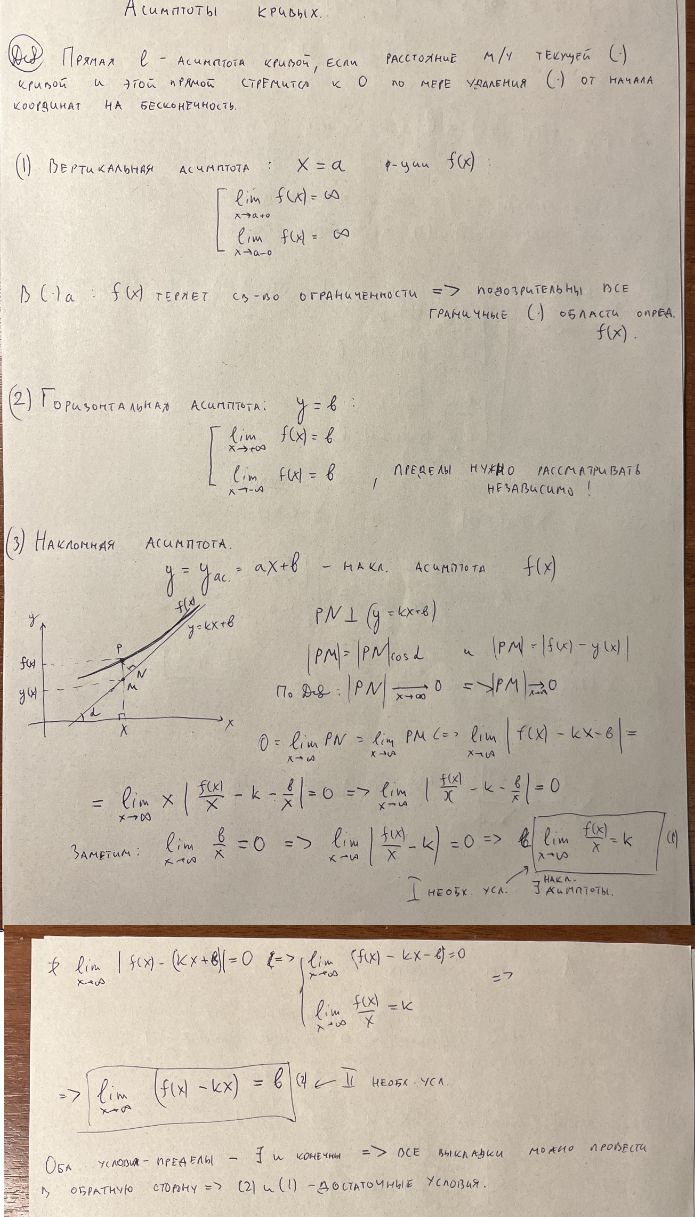 Асимптоты кривых.
Def Прямая l - асимптота кривой, если расстояние м/у текущей (·)
кривой и этой прямой стремится к 0 по мере удаления (·) от начала
координат на бесконечность.
(1) Вертикальная асимптота: x = a ф-ции f(x):
lim f(x) = ∞
x→a+0
lim f(x) = ∞
x→a-0
В (·) a : f(x) теряет св-во ограниченности => подозрительны все
граничные (·) области опред.
f(x).
(2) Горизонтальная асимптота: y = b :
lim f(x) = b
x→+∞
lim f(x) = b , пределы нужно рассматривать
x→-∞ независимо!
(3) Наклонная асимптота.
y = y ас. = ax+b - накл. асимптота f(x)
y f(x) y=kx+b PN ⊥ (y=kx+b)
f(x) P |PM| = |PN| cos α и |PM| = |f(x) - y(x)|
y(x) N M По Def: |PN| → 0 => |PM| → 0
x→∞ x→∞
α X x
0 = lim PN = lim PM <=> lim |f(x) - kx - b| =
x→∞ x→∞ x→∞
= lim x | f(x)/x - k - b/x | = 0 => lim | f(x)/x - k - b/x | = 0
x→∞ x→∞
Заметим: lim b/x = 0 => lim | f(x)/x - k) = 0 => lim f(x)/x = k (1)
x→∞ x→∞ x→∞
I необх. усл. ∃ накл. асимптоты.
lim |f(x) - (kx+b)| = 0 <=> lim (f(x) - kx - b) = 0
x→∞ x→∞ =>
lim f(x)/x = k
x→∞
=> lim (f(x) - kx) = b (2) ← II необх. усл.
x→∞
Оба условия - пределы - ∃ и конечны => все выкладки можно провести
в обратную сторону => (2) и (1) - достаточные условия.